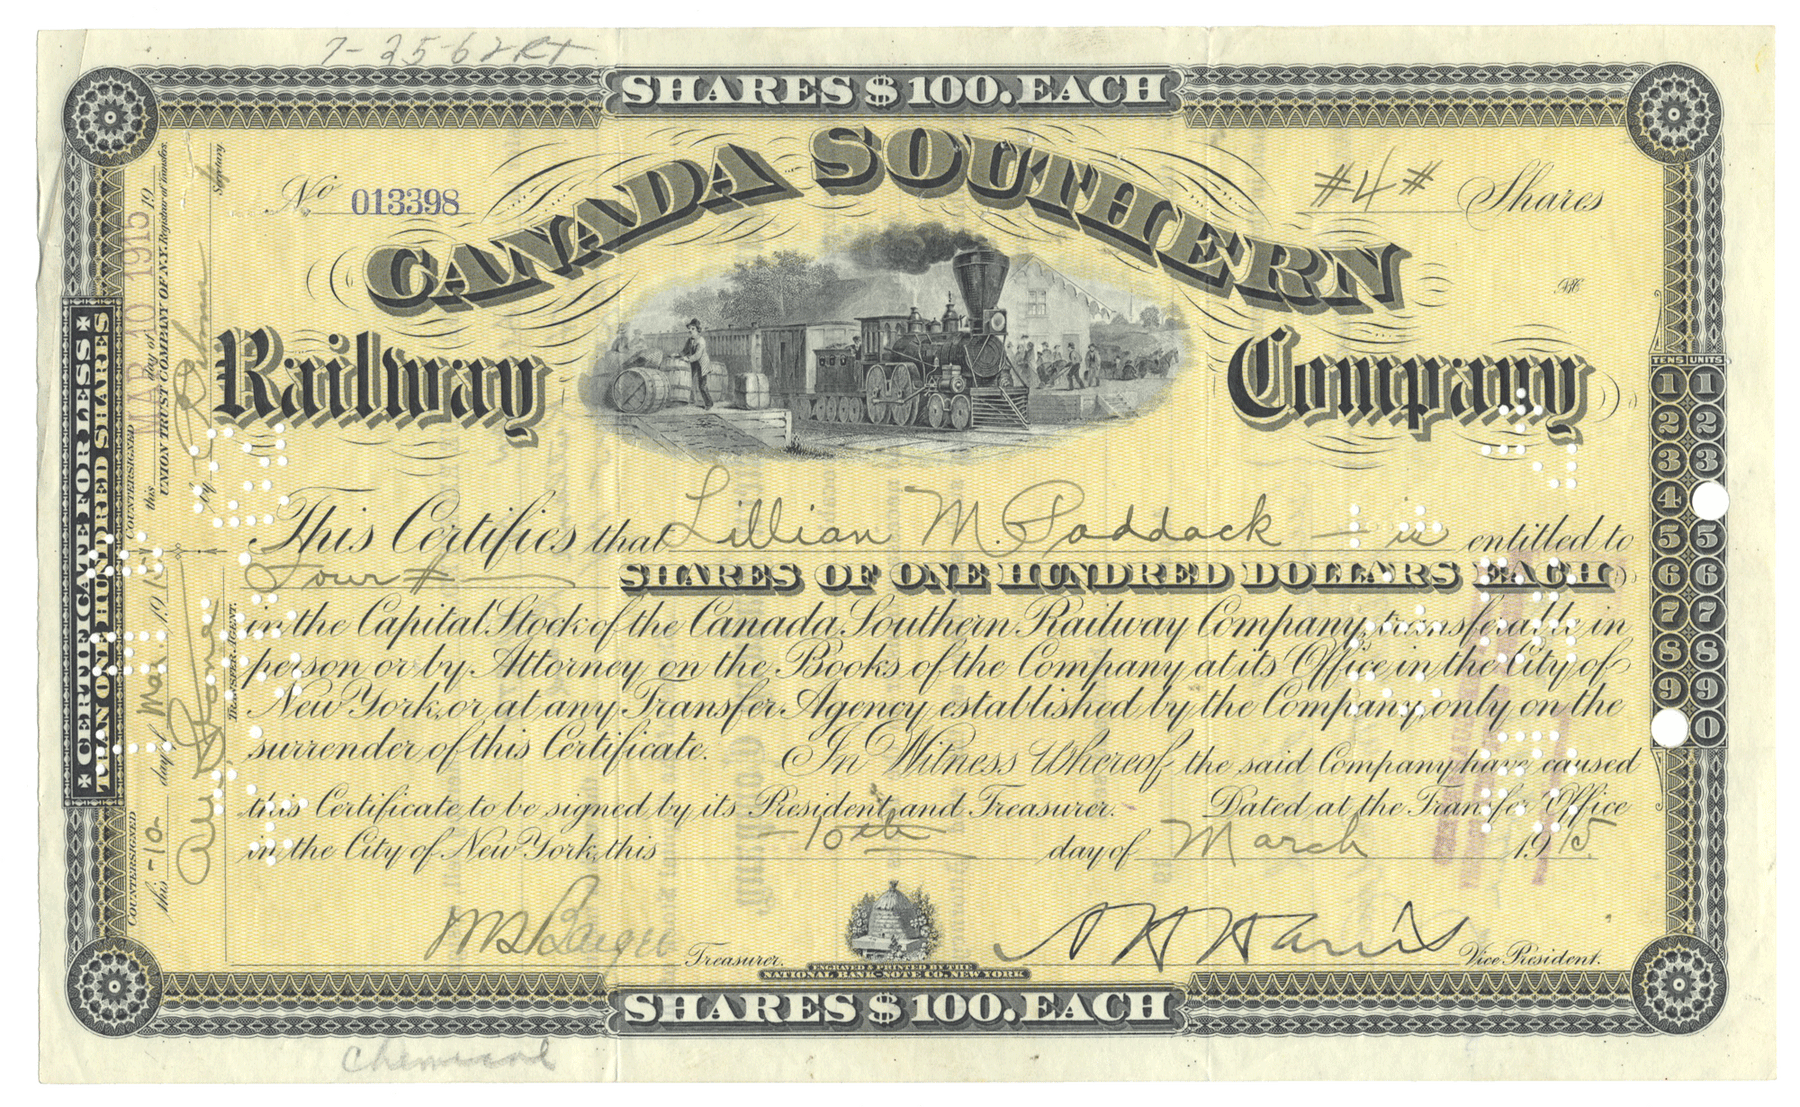 7-25-62 RT
SHARES $100. EACH
No 013398
#4# Shares
CANADA SOUTHERN
Railway Company
This Certifies that Lillian M. Paddock — is entitled to
Four # — SHARES OF ONE HUNDRED DOLLARS EACH
in the Capital Stock of the Canada Southern Railway Company, transferable in
person or by Attorney on the Books of the Company at its Office in the City of
New York, or at any Transfer Agency established by the Company, only on the
surrender of this Certificate. In Witness Whereof the said Company have caused
this Certificate to be signed by its President and Treasurer. Dated at the Transfer Office
in the City of New York, this -10th day of March 1915.
Treasurer.
Vice President.
ENGRAVED & PRINTED BY THE
NATIONAL BANK-NOTE CO. NEW YORK
SHARES $100. EACH
CERTIFICATE FOR LESS
THAN ONE HUNDRED SHARES
COUNTERSIGNED
this day of 19
MAR 10 1915
UNION TRUST COMPANY OF N.Y. Registrar of Transfers.
by
Secretary
COUNTERSIGNED
this -10- day of Mar. 1915
TRANSFER AGENT.
TENS UNITS
1 1
2 2
3 3
4
5 5
6 6
7 7
8 8
9 9
0